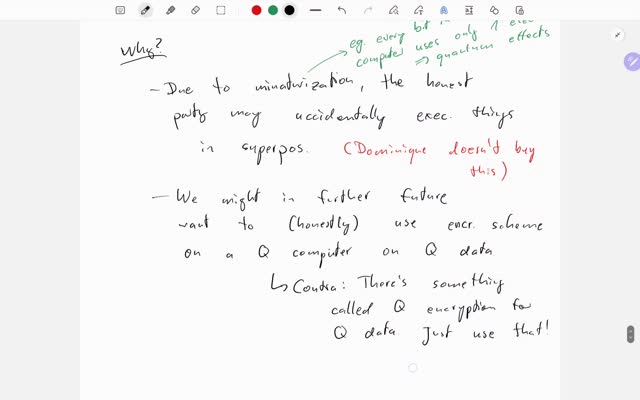 Why?
eg. every bit in
computer uses only 1
⇒ quantum effects
- Due to minaturization, the honest
party may accidentally exec. things
in superpos. (Dominique doesn't buy
this)
- We might in further future
want to (honestly) use encr. scheme
on a Q computer on Q data
↳ Contra: There's something
called Q encryption for
Q data Just use that!